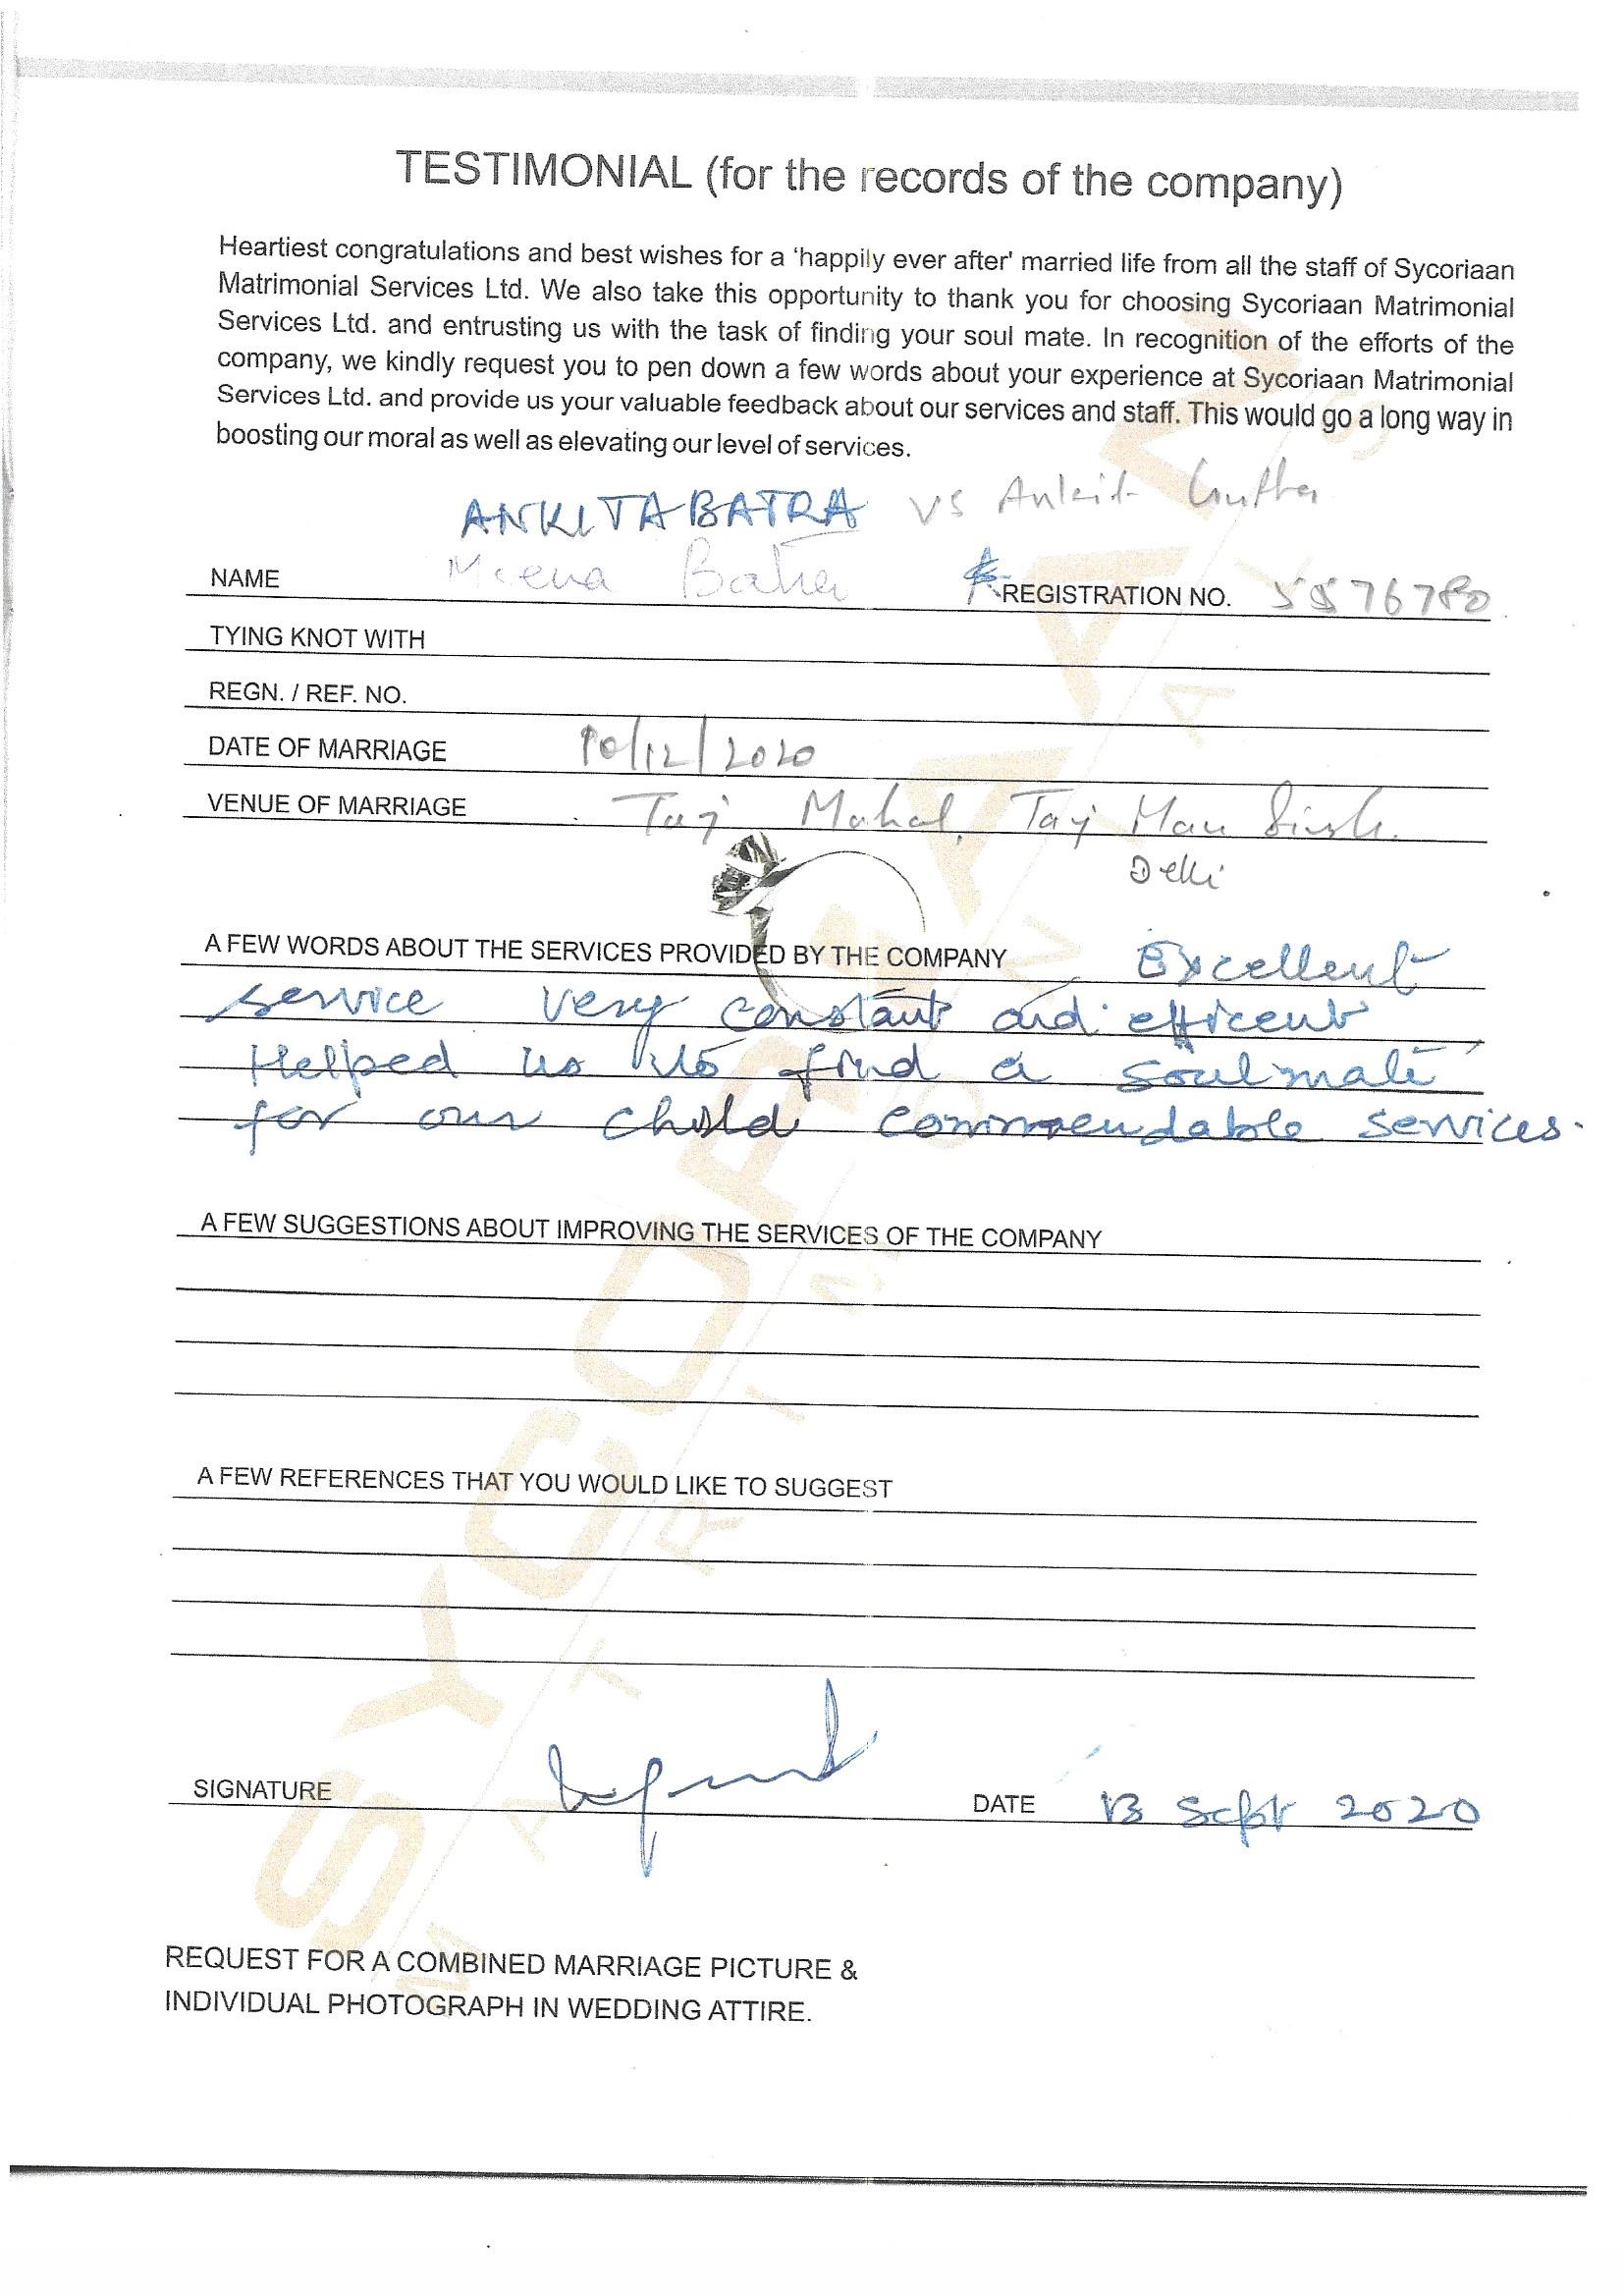 TESTIMONIAL (for the records of the company)
Heartiest congratulations and best wishes for a 'happily ever after' married life from all the staff of Sycoriaan
Matrimonial Services Ltd. We also take this opportunity to thank you for choosing Sycoriaan Matrimonial
Services Ltd. and entrusting us with the task of finding your soul mate. In recognition of the efforts of the
company, we kindly request you to pen down a few words about your experience at Sycoriaan Matrimonial
Services Ltd. and provide us your valuable feedback about our services and staff. This would go a long way in
boosting our moral as well as elevating our level of services.
ANKITA BATRA VS Ankit
NAME Meena Batra REGISTRATION NO. 5576780
TYING KNOT WITH
REGN. / REF. NO.
DATE OF MARRIAGE 10/12/2020
VENUE OF MARRIAGE Taj Mahal, Taj Man Singh.
Delhi
A FEW WORDS ABOUT THE SERVICES PROVIDED BY THE COMPANY Excellent
service very constant and efficent
Helped us to find a soulmate
for our child commendable services.
A FEW SUGGESTIONS ABOUT IMPROVING THE SERVICES OF THE COMPANY
A FEW REFERENCES THAT YOU WOULD LIKE TO SUGGEST
SIGNATURE DATE 13 Sept 2020
REQUEST FOR A COMBINED MARRIAGE PICTURE &
INDIVIDUAL PHOTOGRAPH IN WEDDING ATTIRE.
SYCORIAAN
MATRIMONIALS